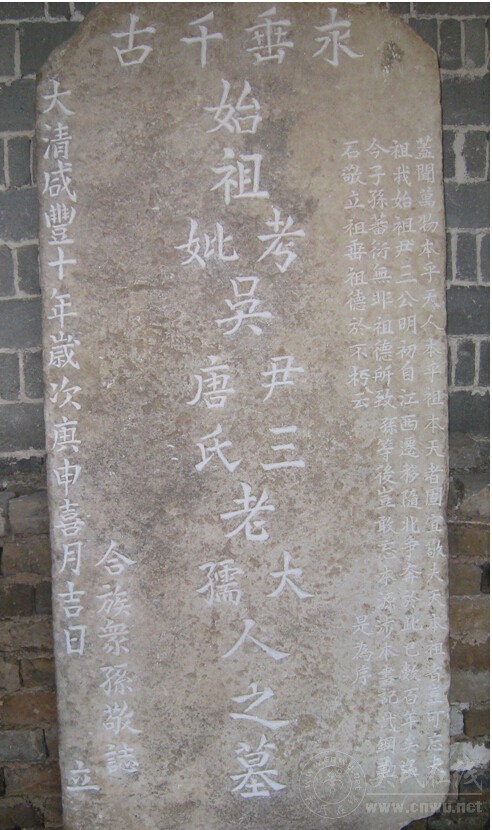 永垂千古
蓋聞萬物本乎天人本乎祖本天者固宜敬天本祖者豈可忘本
祖我始祖尹三公明初自江西遷移隨北爭奔於此已數百年矣
今子孫蕃衍無非祖德所致孫等後豈敢忘本
石敬立祖垂祖德於不朽云 是為序
始祖
考
妣
吳
尹三
唐氏
老
大
孺
人之墓
合族眾孫敬誌
大清咸豐十年歲次庚申喜月吉日 立
www.cnwu.net